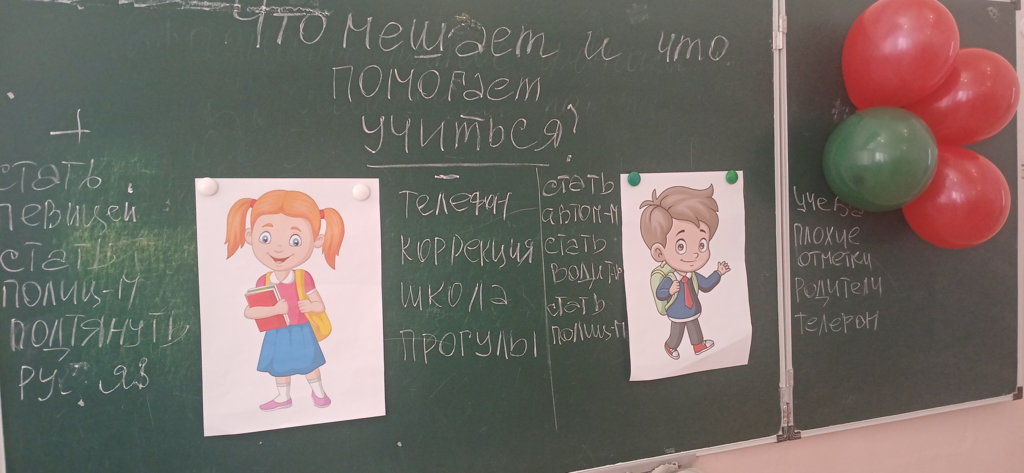 Что мешает и что
помогает
учиться?
+
стать
певицей
стать
полиц-м
подтянуть
рус. яз
-
телефон
коррекция
школа
прогулы
стать
автом-м
стать
водит
стать
полиц-м
учёба
плохие
отметки
родители
телефон